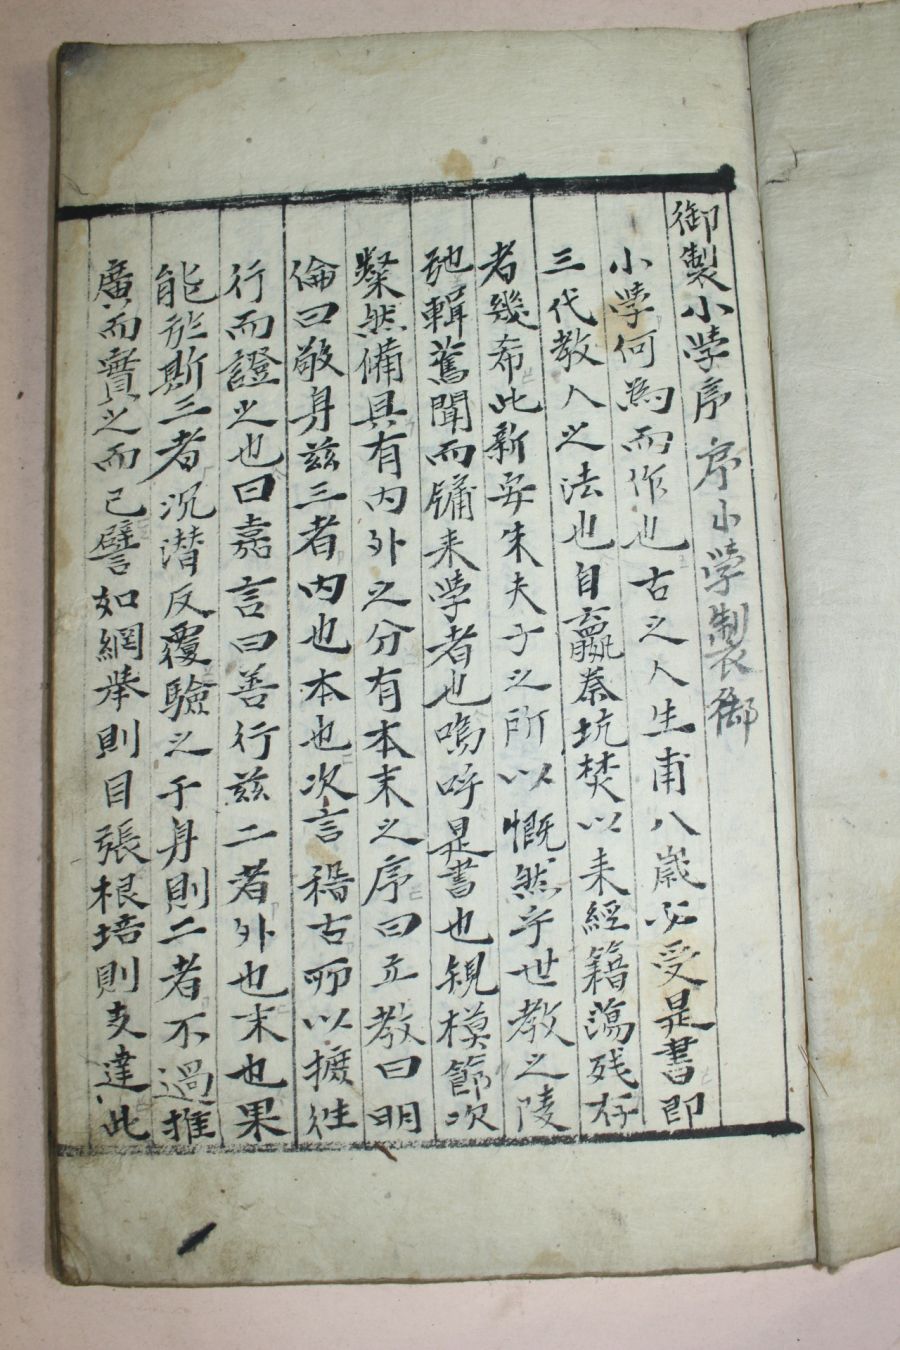 御製小学序 序小学製御
小学何為而作也古之人生甫八歲必受是書即
三代教人之法也自嬴秦坑焚以来經籍蕩殘存
者幾希此新安朱夫子之所以慨然乎世教之陵
弛輯舊聞而牖来学者也嗚呼是書也規模節次
粲然備具有内外之分有本末之序曰立教曰明
倫曰敬身玆三者内也本也次言稽古所以摭往
行而證之也曰嘉言曰善行玆二者外也末也果
能於斯三者沉潜反覆驗之于身則二者不過推
廣而實之而已譬如網舉則目張根培則支達此